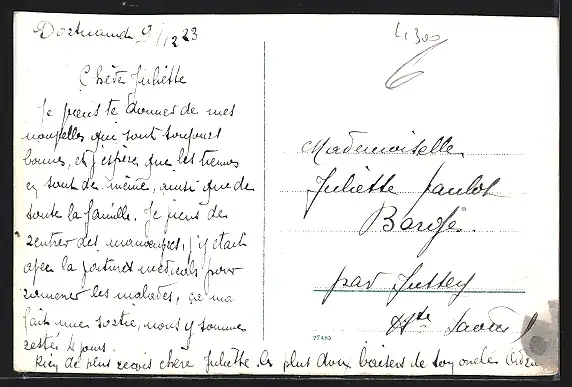 Dortmund 9/12 23
Chère Juliette
Je viens te donner de mes
nouvelles qui sont toujours
bonnes, et j'espère que les tiennes
en sont de même, ainsi que de
toute la famille. Je viens de
rentrer des manœuvres, j'y étais
avec la voiture médicale pour
ramener les malades, ça m'a
fait une sortie, nous y sommes
restés 4 jours.
Rien de plus reçois chère Juliette, les plus doux baisers de ton oncle
4300
6
Mademoiselle
Juliette
Barges
par Jussey
Hte Saône